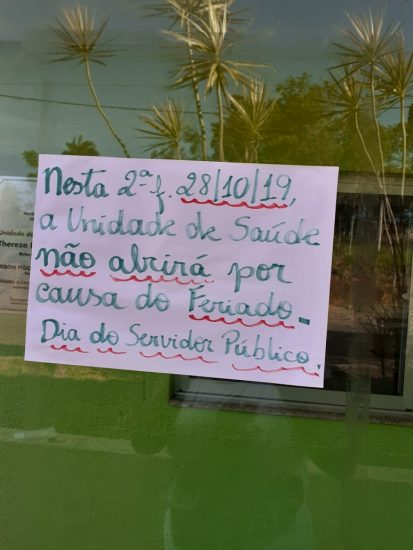 Nesta 2ª f. 28/10/19,
a Unidade de Saúde
não abrirá por
causa do Feriado.
Dia do Servidor Público.